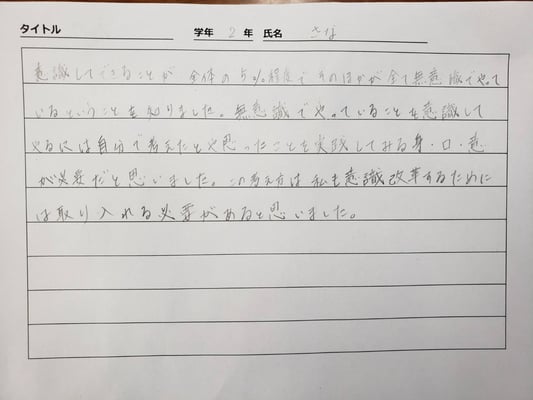 タイトル 学年 2 年 氏名 さな
意識してできることが 全体の5%程度でそのほかが全て無意識でやって
いるということを知りました。無意識でやっていることを意識して
やるには自分で考えたとや思ったことを実践してみる身・口・意
が必要だと思いました。この考え方は私も意識改革するために
は取り入れる必要があると思いました。